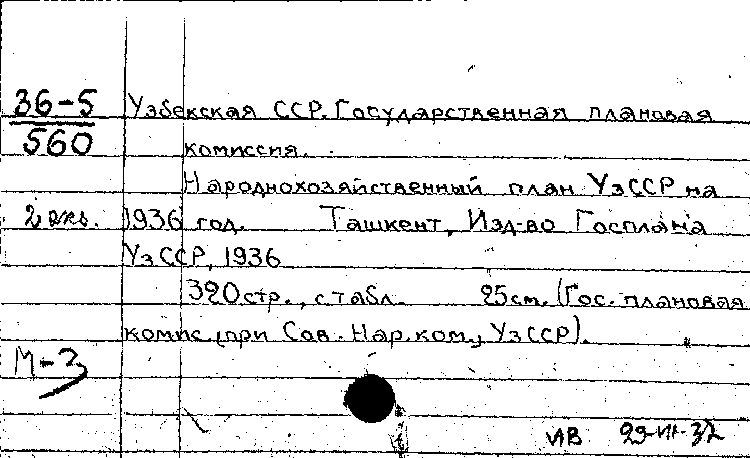 36-5 Узбекская ССР. Государственная плановая
560 комиссия.
Народнохозяйственный план УзССР на
2 экз. 1936 год. Ташкент, Изд-во Госплана
УзССР, 1936
320 стр., с табл. 25 см. (Гос. плановая
комис. при Сов. Нар. ком., УзССР).
М-3
ИВ 29-III-37